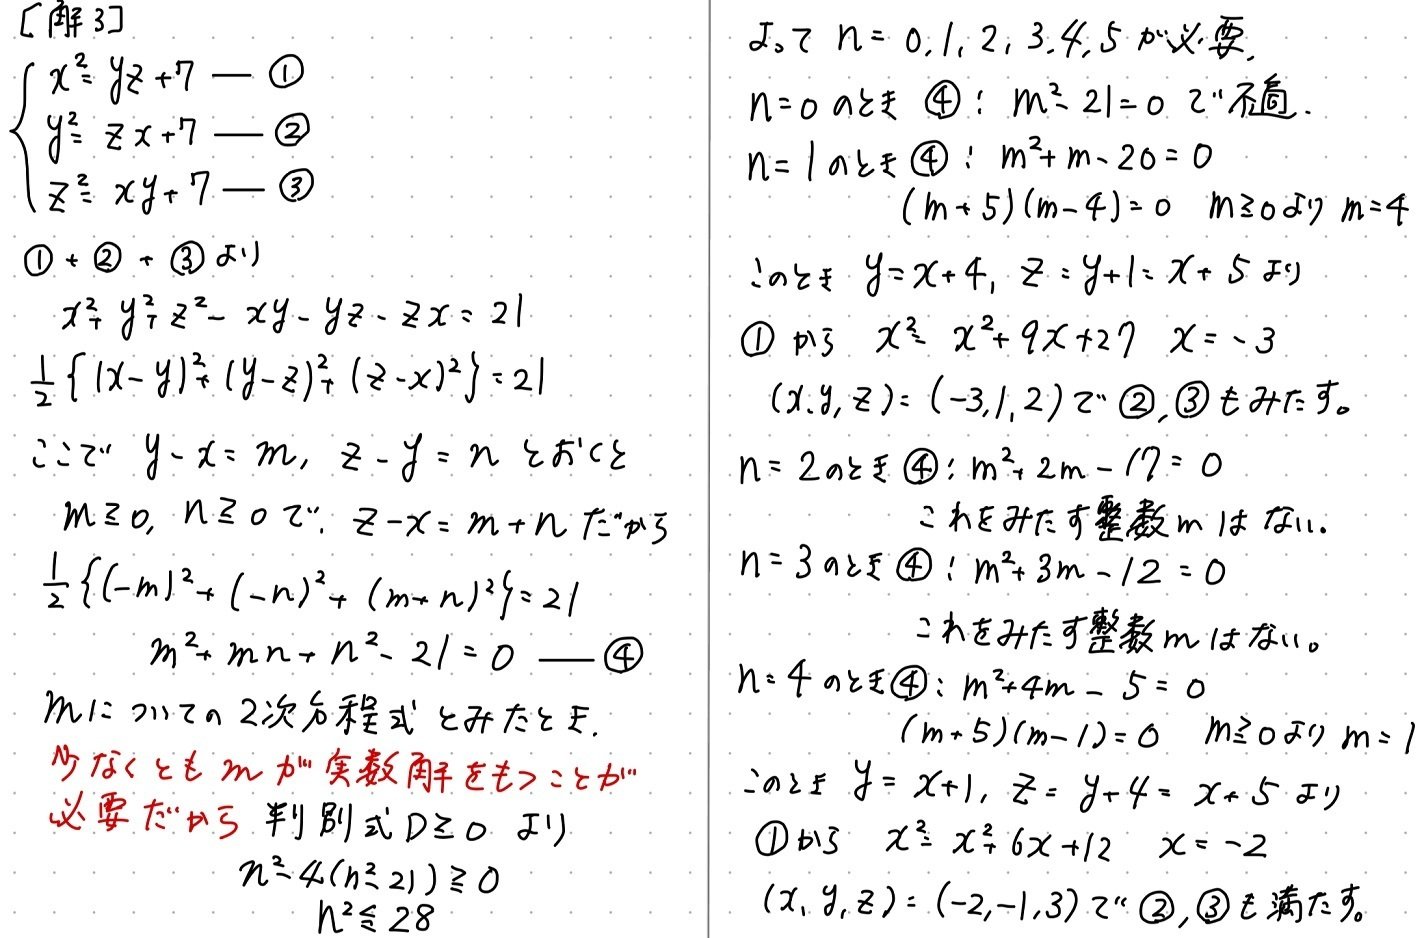 [解3]
x²=yz+7 ― ①
y²=zx+7 ― ②
z²=xy+7 ― ③
①+②+③より
x²+y²+z²-xy-yz-zx=21
1/2{(x-y)²+(y-z)²+(z-x)²}=21
ここで y-x=m, z-y=n とおくと
m≧0, n≧0で, z-x=m+nだから
1/2{(-m)²+(-n)²+(m+n)²}=21
m²+mn+n²-21=0 ― ④
mについての2次方程式とみたとき,
少なくともmが実数解をもつことが
必要だから 判別式D≧0 より
n²-4(n²-21)≧0
n²≦28
よって n=0,1,2,3,4,5が必要,
n=0のとき ④: m²-21=0 で不適.
n=1のとき ④: m²+m-20=0
(m+5)(m-4)=0 m≧0より m=4
このとき y=x+4, z=y+1=x+5より
①から x²=x²+9x+27 x=-3
(x,y,z)=(-3,1,2)で②,③もみたす。
n=2のとき④: m²+2m-17=0
これをみたす整数mはない.
n=3のとき④: m²+3m-12=0
これをみたす整数mはない。
n=4のとき④: m²+4m-5=0
(m+5)(m-1)=0 m≧0より m=1
このとき y=x+1, z=y+4=x+5より
①から x²=x²+6x+12 x=-2
(x,y,z)=(-2,-1,3)で②,③も満たす。